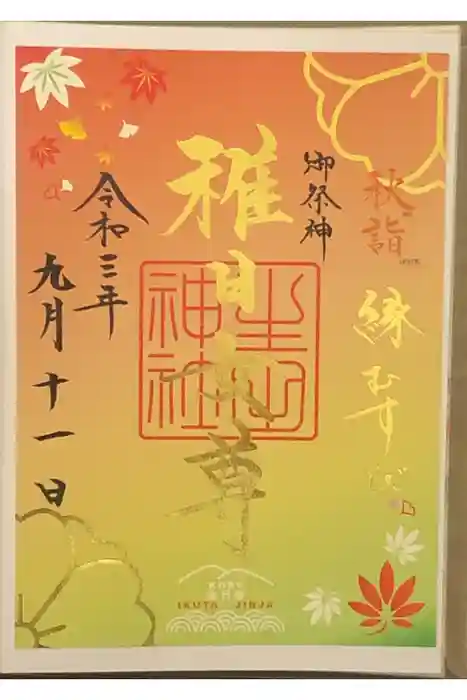 秋詣
縁むすび
御祭神
稚日女尊
生田神社
令和三年
九月十一日
IKUTA JINJA